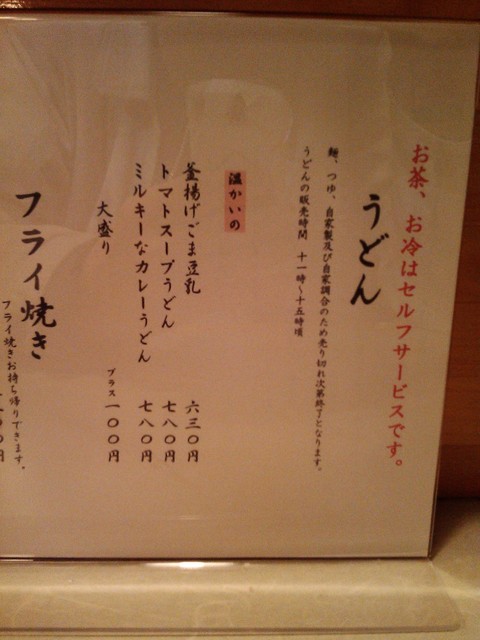 お茶、お冷はセルフサービスです。
うどん
麺、つゆ、自家製及び自家調合のため売り切れ次第終了となります。
うどんの販売時間 十一時～十五時頃
温かいの
釜揚げごま豆乳 六三〇円
トマトスープうどん 七八〇円
ミルキーなカレーうどん 七八〇円
大盛り プラス一〇〇円
フライ焼き
フライ焼きお持ち帰りできます。